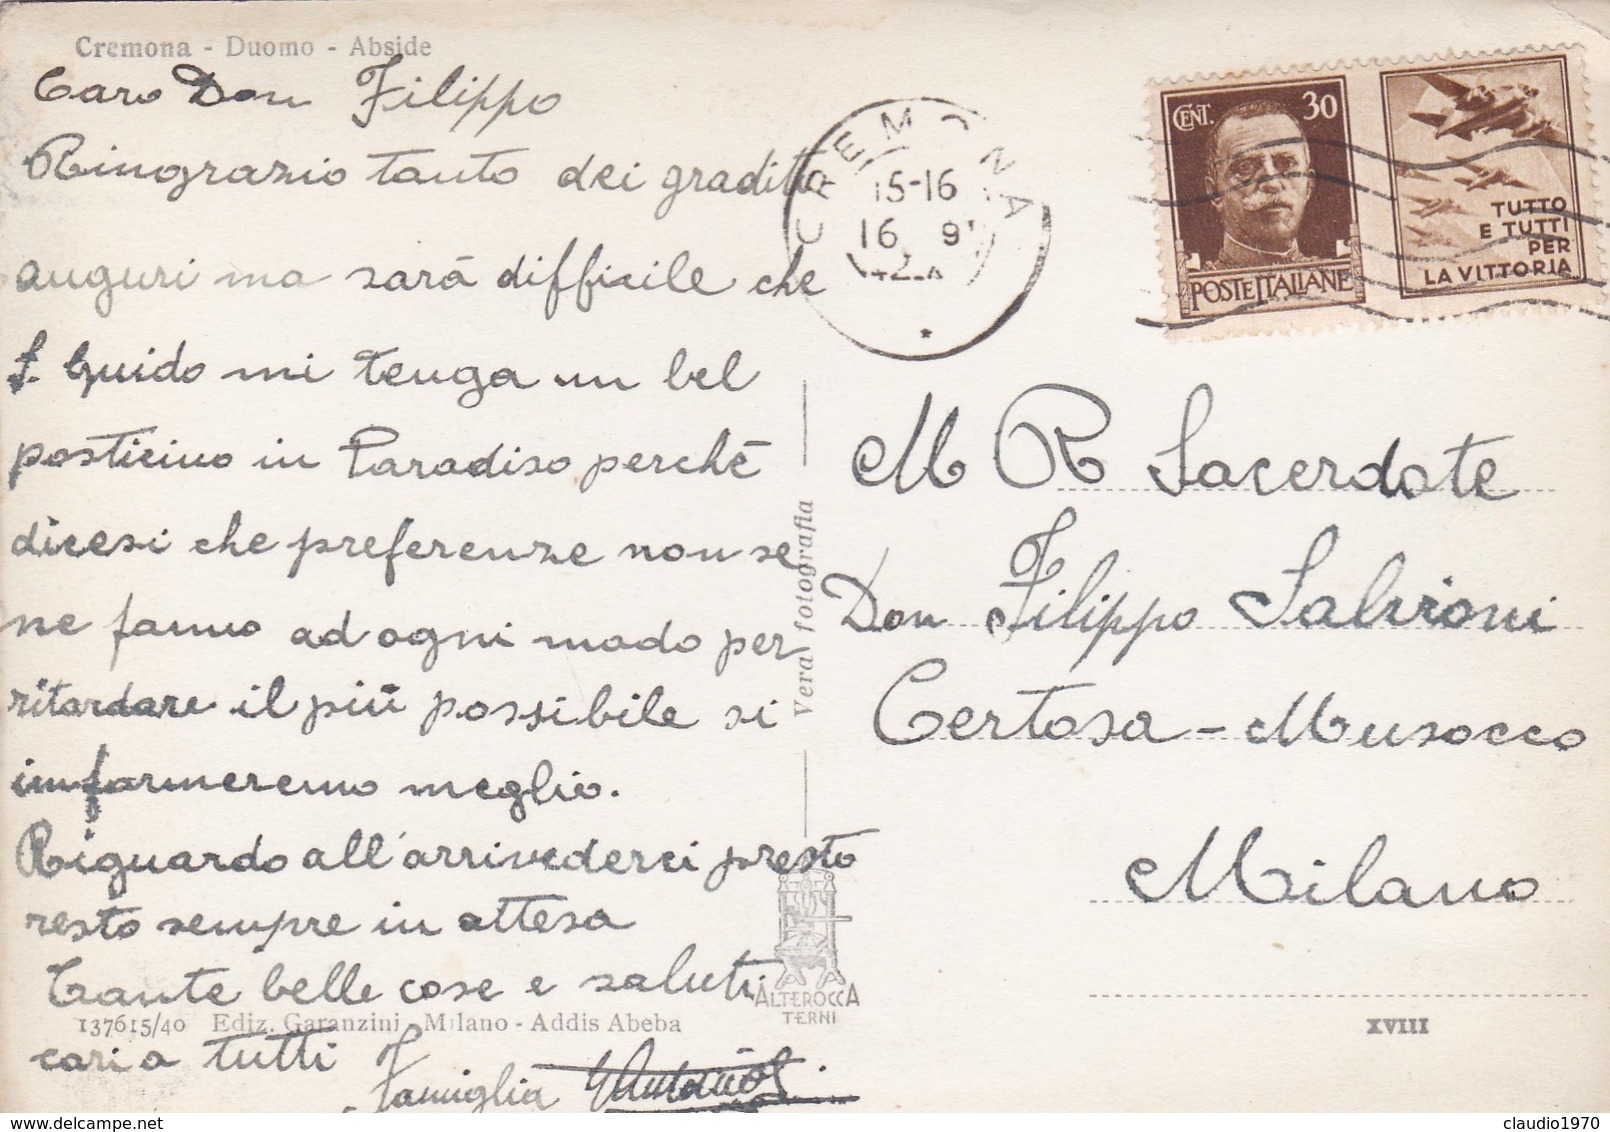 Cremona - Duomo - Abside
Caro Don Filippo
Ringrazio tanto dei graditi
auguri ma sarà difficile che
S. Guido mi tenga un bel
posticino in Paradiso perchè
dicesi che preferenze non se
ne fanno ad ogni modo per
ritardare il più possibile si
informeremo meglio.
Riguardo all'arrivederci presto
resto sempre in attesa
Tante belle cose e saluti
137615/40 Ediz. Garanzini - Milano - Addis Abeba
cari a tutti
Famiglia
Vera fotografia
ALTEROCCA
TERNI
CREMONA
15-16
16 9
42
CENT. 30
POSTE ITALIANE
TUTTO
E TUTTI
PER
LA VITTORIA
M R Sacerdote
Don Filippo Salvioni
Certosa - Musocco
Milano
XVIII
claudio1970